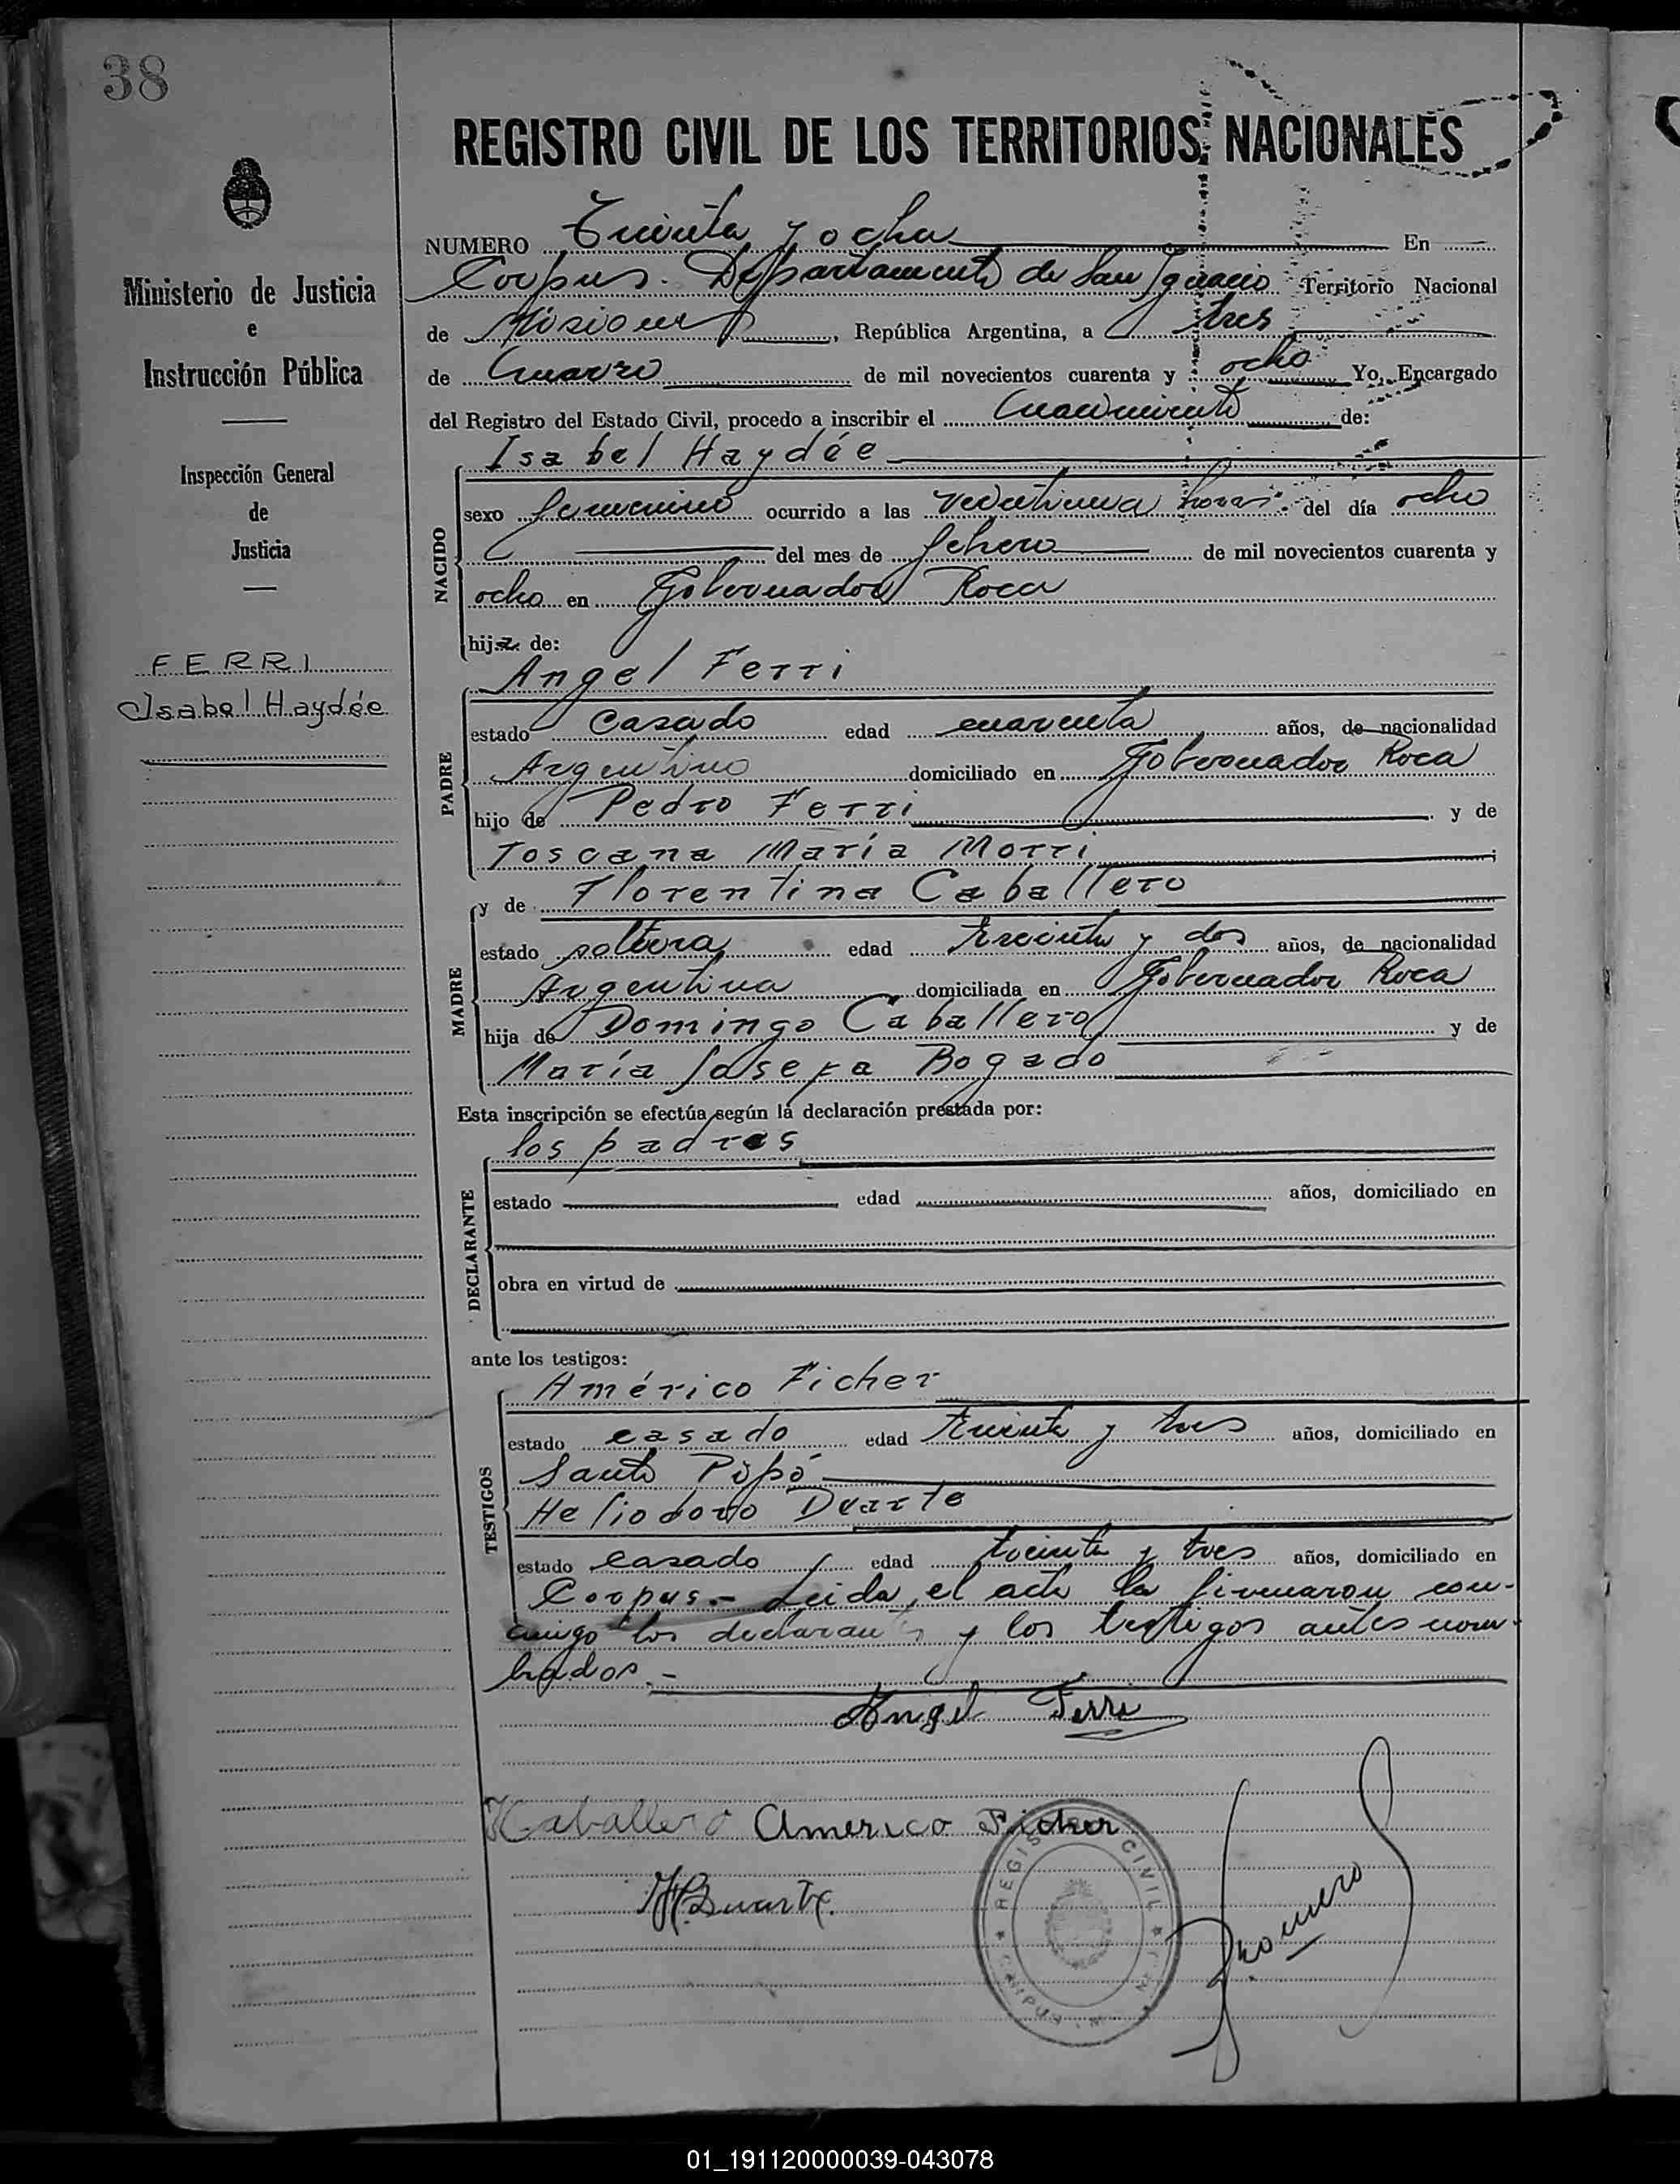 38
REGISTRO CIVIL DE LOS TERRITORIOS NACIONALES
Ministerio de Justicia
e
Instrucción Pública
Inspección General
de
Justicia
FERRI
Isabel Haydée
NUMERO Treinta y ocho En
Corpus. Departamento de San Ignacio Territorio Nacional
de Misiones, República Argentina, a tres
de de mil novecientos cuarenta y ocho Yo, Encargado
del Registro del Estado Civil, procedo a inscribir el nacimiento de:
Isabel Haydée
NACIDO
sexo femenino ocurrido a las horas del día ocho
del mes de febrero de mil novecientos cuarenta y
ocho en Gobernador Roca
hija de:
Angel Ferri
PADRE
estado casado edad cuarenta años, de nacionalidad
Argentino domiciliado en Gobernador Roca
hijo de Pedro Ferri y de
Toscana María Morri
y de Florentina Caballero
MADRE
estado soltera edad treinta y dos años, de nacionalidad
Argentina domiciliada en Gobernador Roca
hija de Domingo Caballero y de
María Josefa Bogado
Esta inscripción se efectúa según la declaración prestada por:
los padres
DECLARANTE
estado edad años, domiciliado en
obra en virtud de
ante los testigos:
Américo Ficher
TESTIGOS
estado casado edad treinta y tres años, domiciliado en
Santo Pipó
Heliodoro Duarte
estado casado edad treinta y tres años, domiciliado en
Corpus.- Leida el acta la firmaron con-
migo los declarantes y los testigos antes nom-
brados.-
Angel Ferri
Caballero Americo Ficher
H Duarte.
REGISTRO CIVIL
Romero
01_191120000039-043078